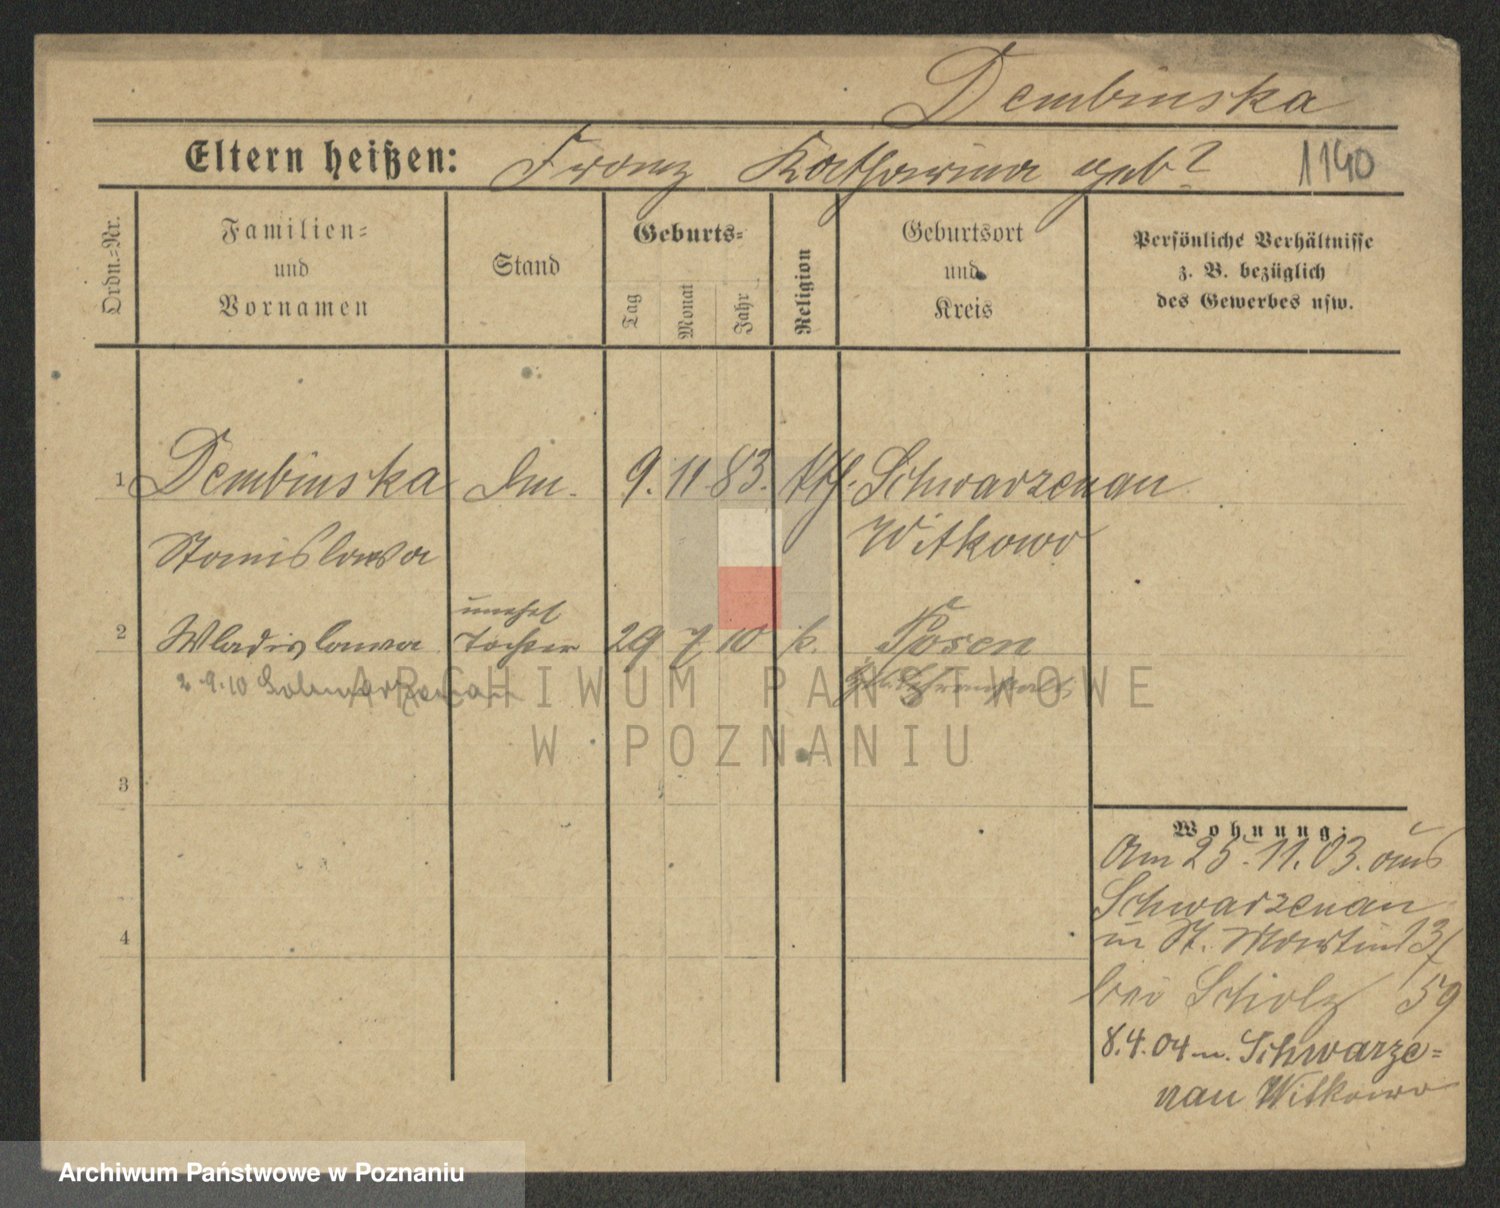 Dembinska
Eltern heißen: Franz Katharina geb?
1140
Ordn.=Nr.
Familien=
und
Vornamen
Stand
Geburts=
Tag
Monat
Jahr
Religion
Geburtsort
und
Kreis
Persönliche Verhältnisse
z. B. bezüglich
des Gewerbes usw.
1 Dembinska 9. 11 83. kth. Schwarzenau
Stanislawa Witkowo
unehel
2 Wladislawa Tochter 29 7 10 k. Posen
2.9.10 Schwarzenau
ARCHIWUM PAŃSTWOWE
W POZNANIU
3
4
Wohnung:
Am 25.11.03. aus
Schwarzenau
in St. Martin 13/
bei Scholz 59
8.4.04 n. Schwarze=
nau Witkowo
Archiwum Państwowe w Poznaniu